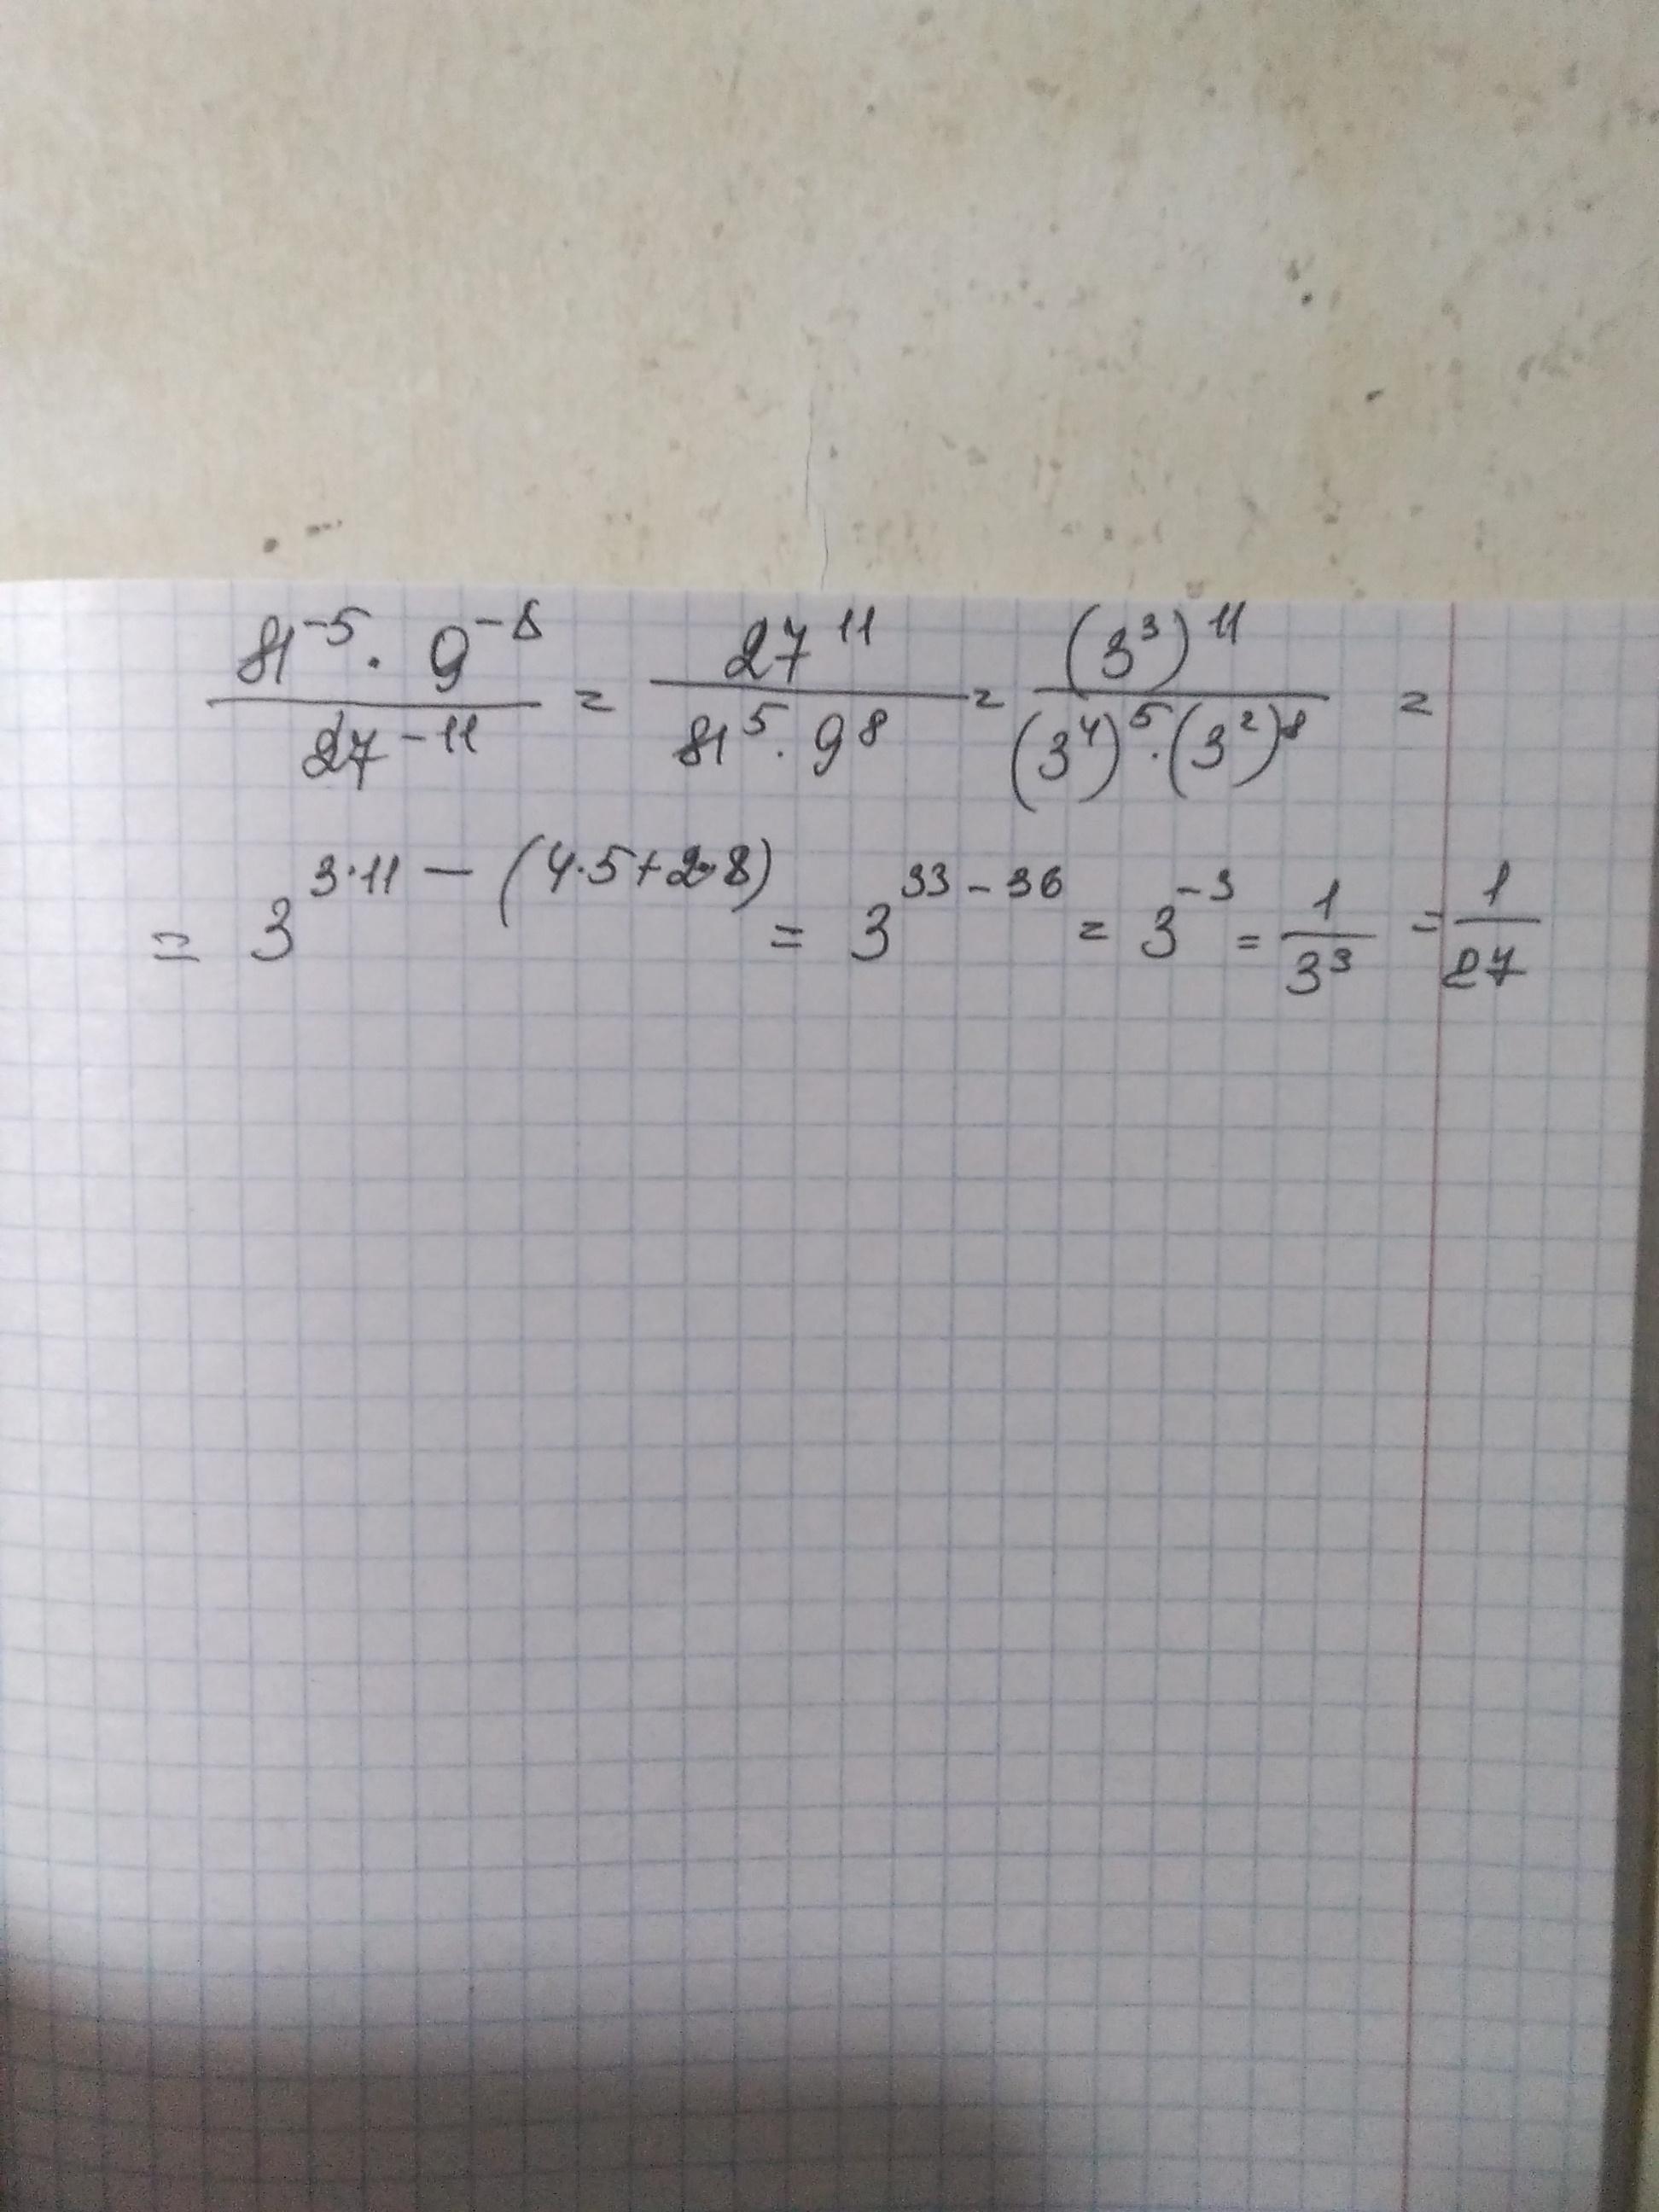 81⁻⁵ · 9⁻⁸ / 27⁻¹¹ = 27¹¹ / 81⁵ · 9⁸ = (3³)¹¹ / (3⁴)⁵ · (3²)⁸ =
= 3^{3·11 − (4·5+2·8)} = 3^{33−36} = 3⁻³ = 1/3³ = 1/27